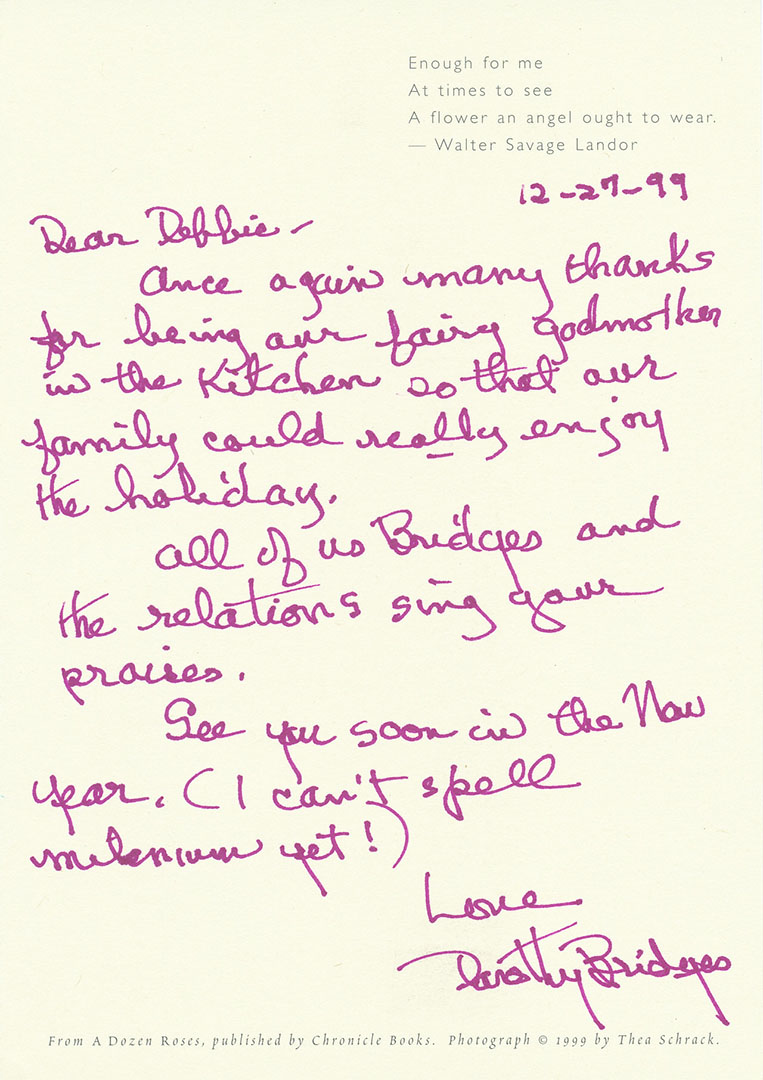 Enough for me
At times to see
A flower an angel ought to wear.
— Walter Savage Landor
12-27-99
Dear Debbie -
Once again many thanks
for being our fairy godmother
in the kitchen so that our
family could really enjoy
the holiday.
All of us Bridges and
the relations sing your
praises.
See you soon in the New
Year. (I can't spell
milenium yet!)
Love
Dorothy Bridges
From A Dozen Roses, published by Chronicle Books. Photograph © 1999 by Thea Schrack.